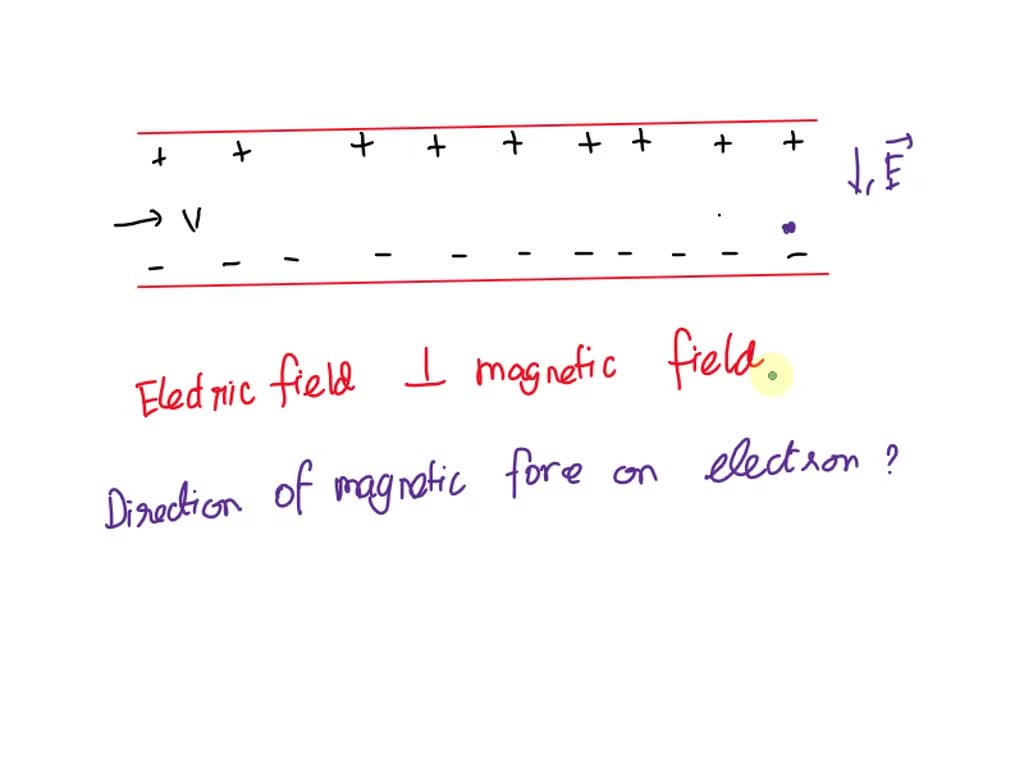 + + + + + + + + +
↓, E→
→ V
- - - - - - - - - - -
Eledric field ⊥ magnetic field
Direction of magnetic force on electron ?